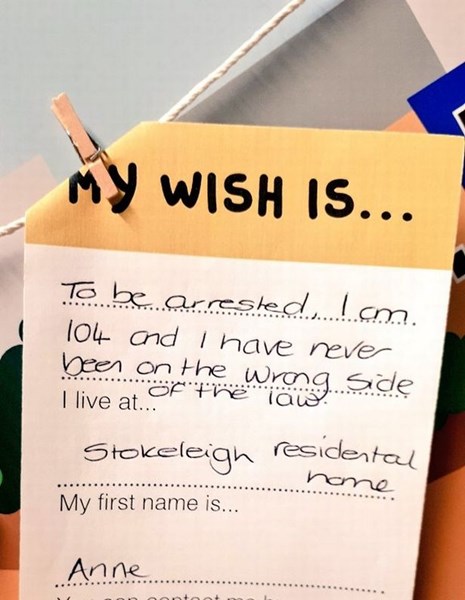 MY WISH IS...
To be arrested, I am.
104 and I have never
been on the wrong side
of the law.
I live at...
Stokeleigh residental
home
My first name is...
Anne